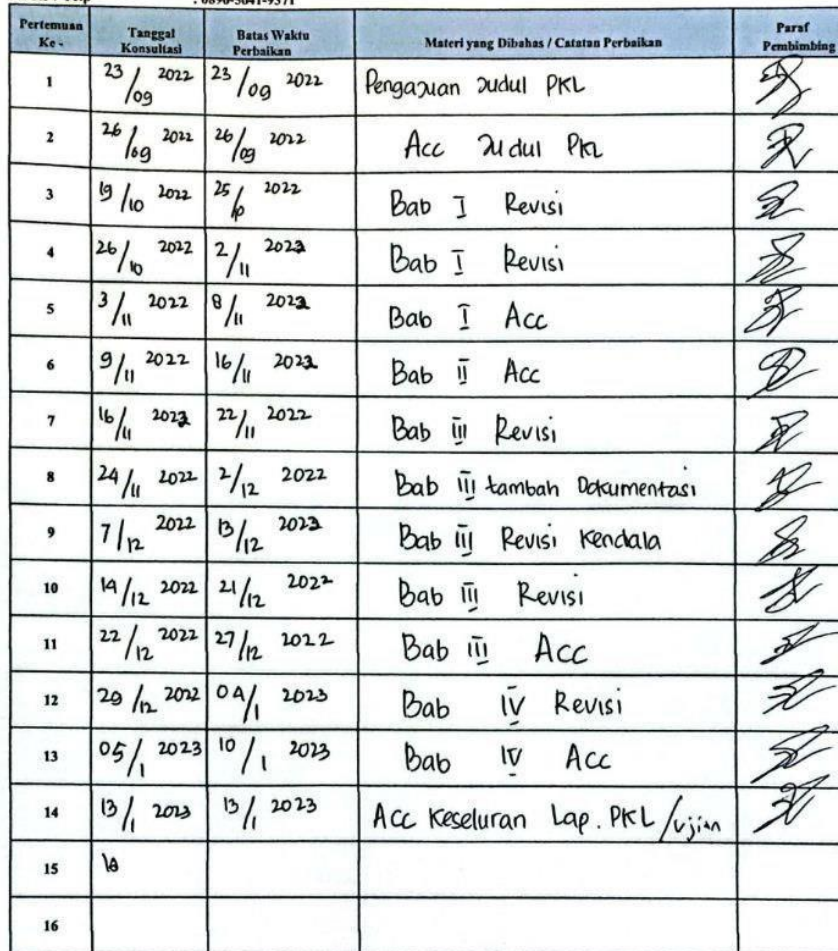 Pertemuan Ke - Tanggal Konsultasi Batas Waktu Perbaikan Materi yang Dibahas / Catatan Perbaikan Paraf Pembimbing
1 23/09 2022 23/09 2022 Pengajuan Judul PKL
2 26/09 2022 26/09 2022 Acc Judul PKL
3 19/10 2022 25/10 2022 Bab I Revisi
4 26/10 2022 2/11 2022 Bab I Revisi
5 3/11 2022 8/11 2022 Bab I Acc
6 9/11 2022 16/11 2022 Bab II Acc
7 16/11 2022 22/11 2022 Bab III Revisi
8 24/11 2022 2/12 2022 Bab III tambah Dokumentasi
9 7/12 2022 13/12 2022 Bab III Revisi Kendala
10 14/12 2022 21/12 2022 Bab III Revisi
11 22/12 2022 27/12 2022 Bab III Acc
12 29/12 2022 04/1 2023 Bab IV Revisi
13 05/1 2023 10/1 2023 Bab IV Acc
14 13/1 2023 13/1 2023 Acc Keseluran Lap. PKL/Ujian
15
16